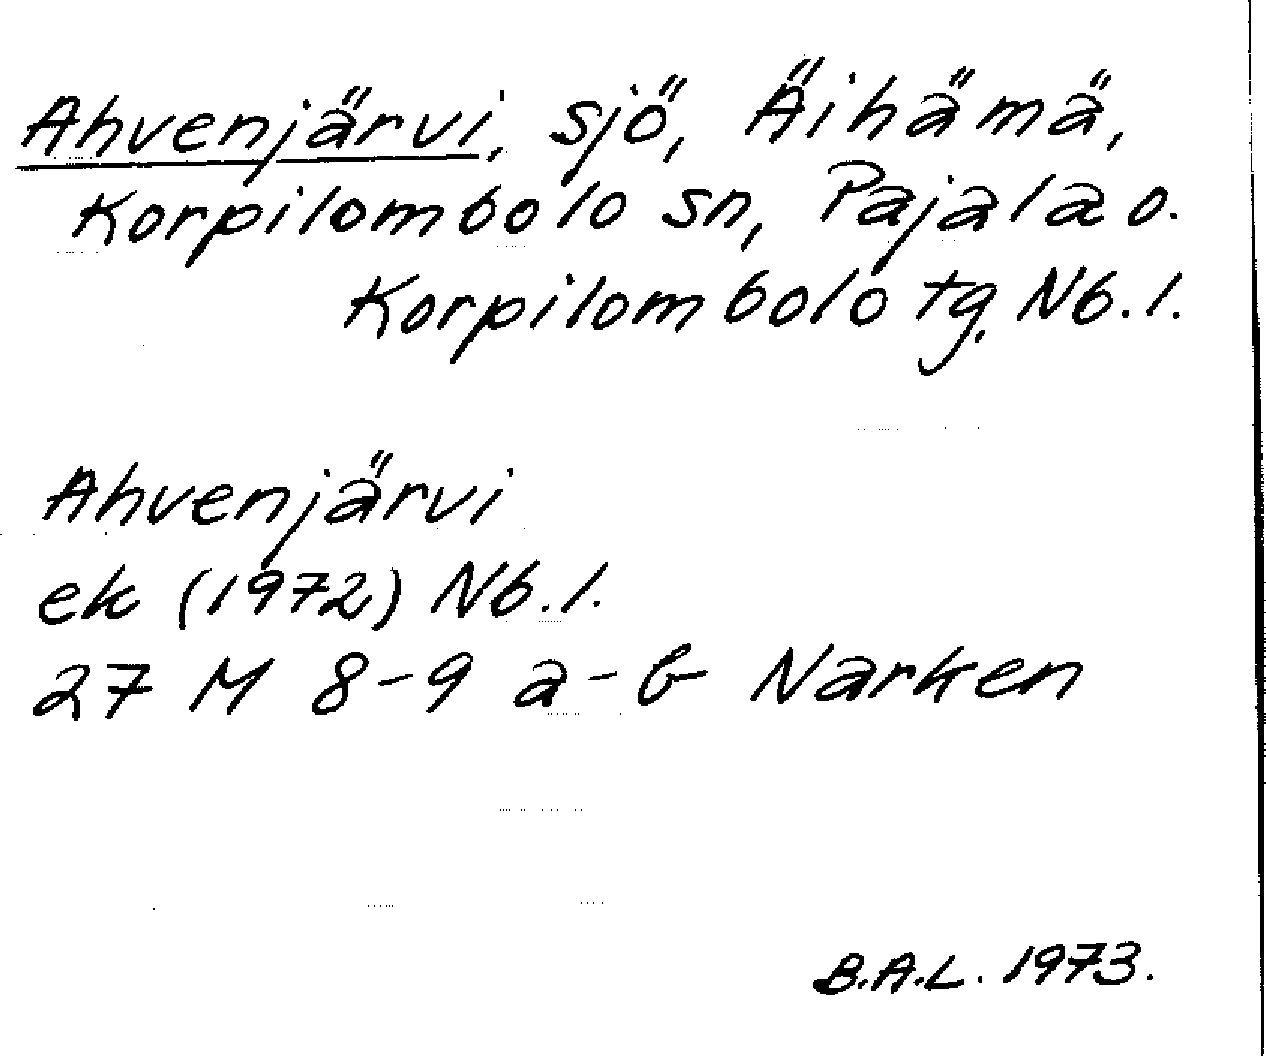 Ahvenjärvi, sjö, Äihämä,
Korpilombolo sn, Pajala o.
Korpilombolo tg. Nb.l.
Ahvenjärvi
ek (1972) Nb.l.
27 M 8-9 a-b Narken
B.A.L. 1973.